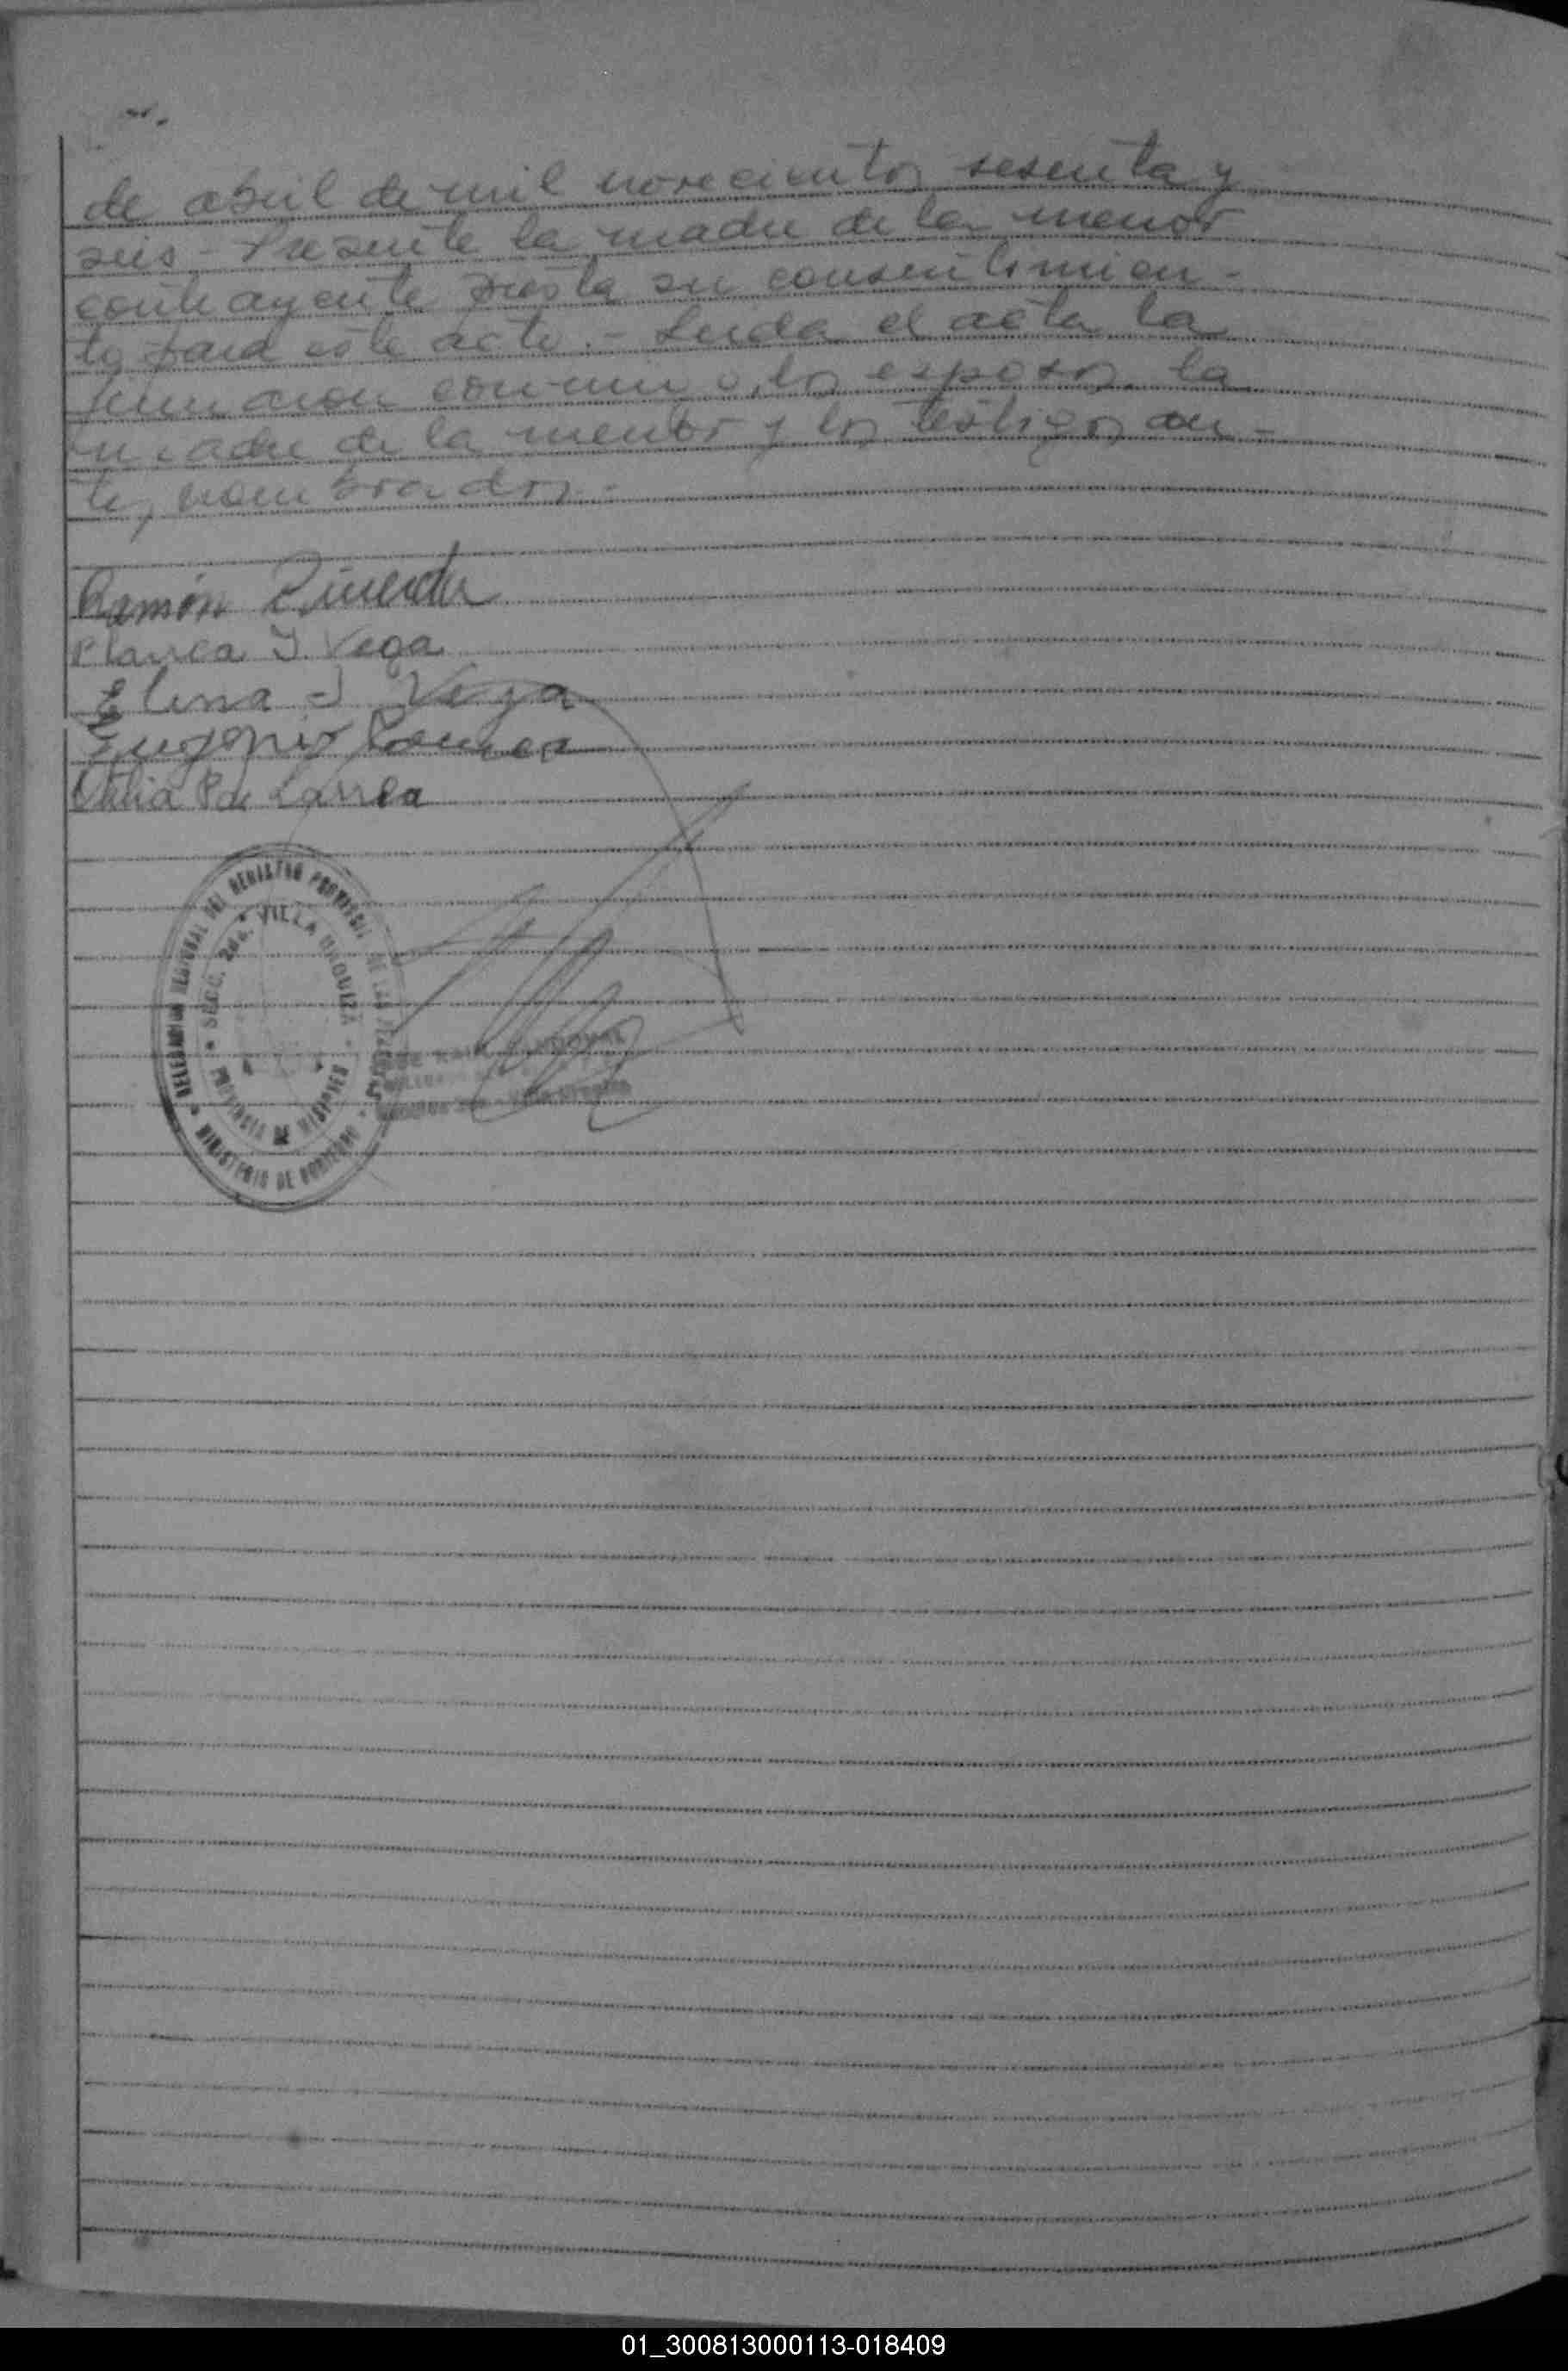 de abril de mil novecientos sesenta y
seis - Presente la madre de la menor
contrayente presta su consentimien-
to para este acto.- Leida el acta la
firmaron conmigo, los esposos la
madre de la menor y los testigos an-
tes, nombrados.-
Ramón Pineda
Blanca I. Vega
Elina I Vega
Eugenio
Otilia P de Larrea
DELEGACION REGIONAL DEL REGISTRO PROVINCIAL DE LAS PERSONAS
MINISTERIO DE GOBIERNO
SECC. 2da. VILLA URQUIZA
PROVINCIA DE MISIONES
01_300813000113-018409